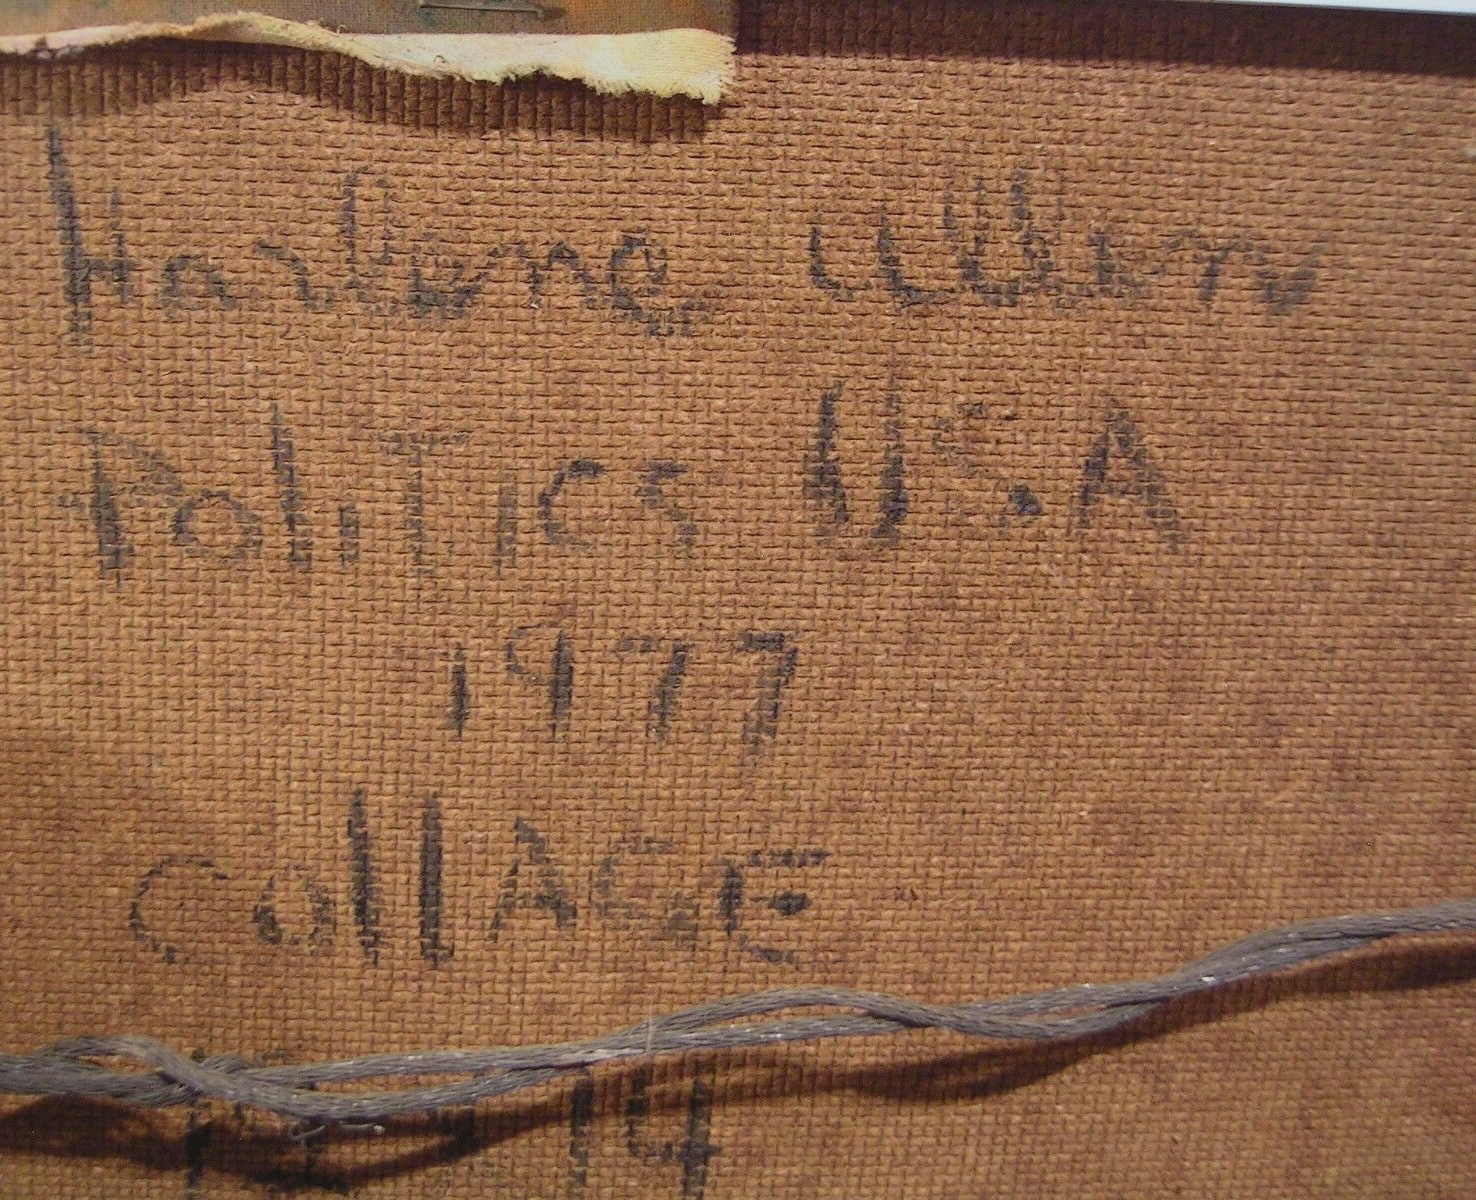 Harlene
Politics U.S.A
1977
Collage
14